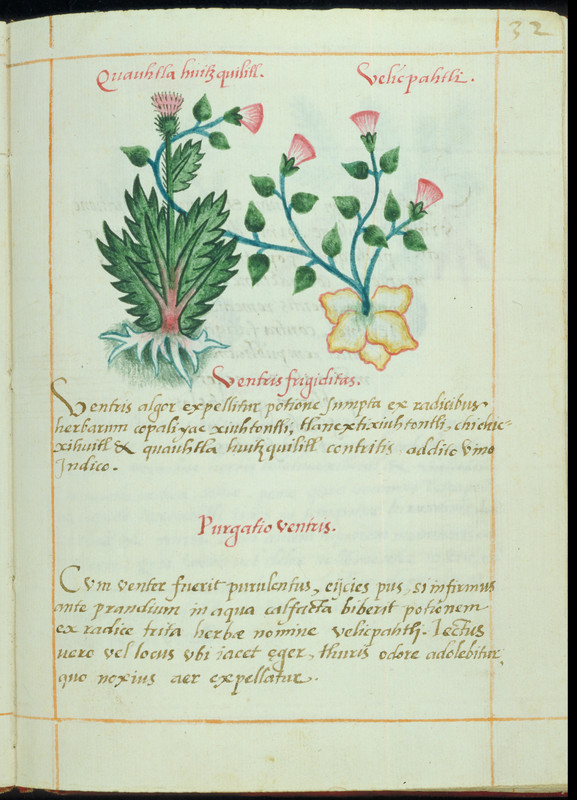 32
Quauhtla huitzquilitl.
Velicpahtli.
Ventris frigiditas.
Ventris algor expellitur potione sumpta ex radicibus
herbarum copaliyac xiuhtontli, tlanextixiuhtontli, chichic-
xihuitl & quauhtla huitzquilitl contritis addito vino
Indico.
Purgatio ventris.
Cvm venter fuerit purulentus, eijcies pus, si infirmus
ante prandium in aqua calfacta biberit potionem
ex radice trita herbæ nomine velicpahtli. Lectus
vero vel locus vbi iacet ęger, thuris odore adolebitur,
quo noxius aer expellatur.